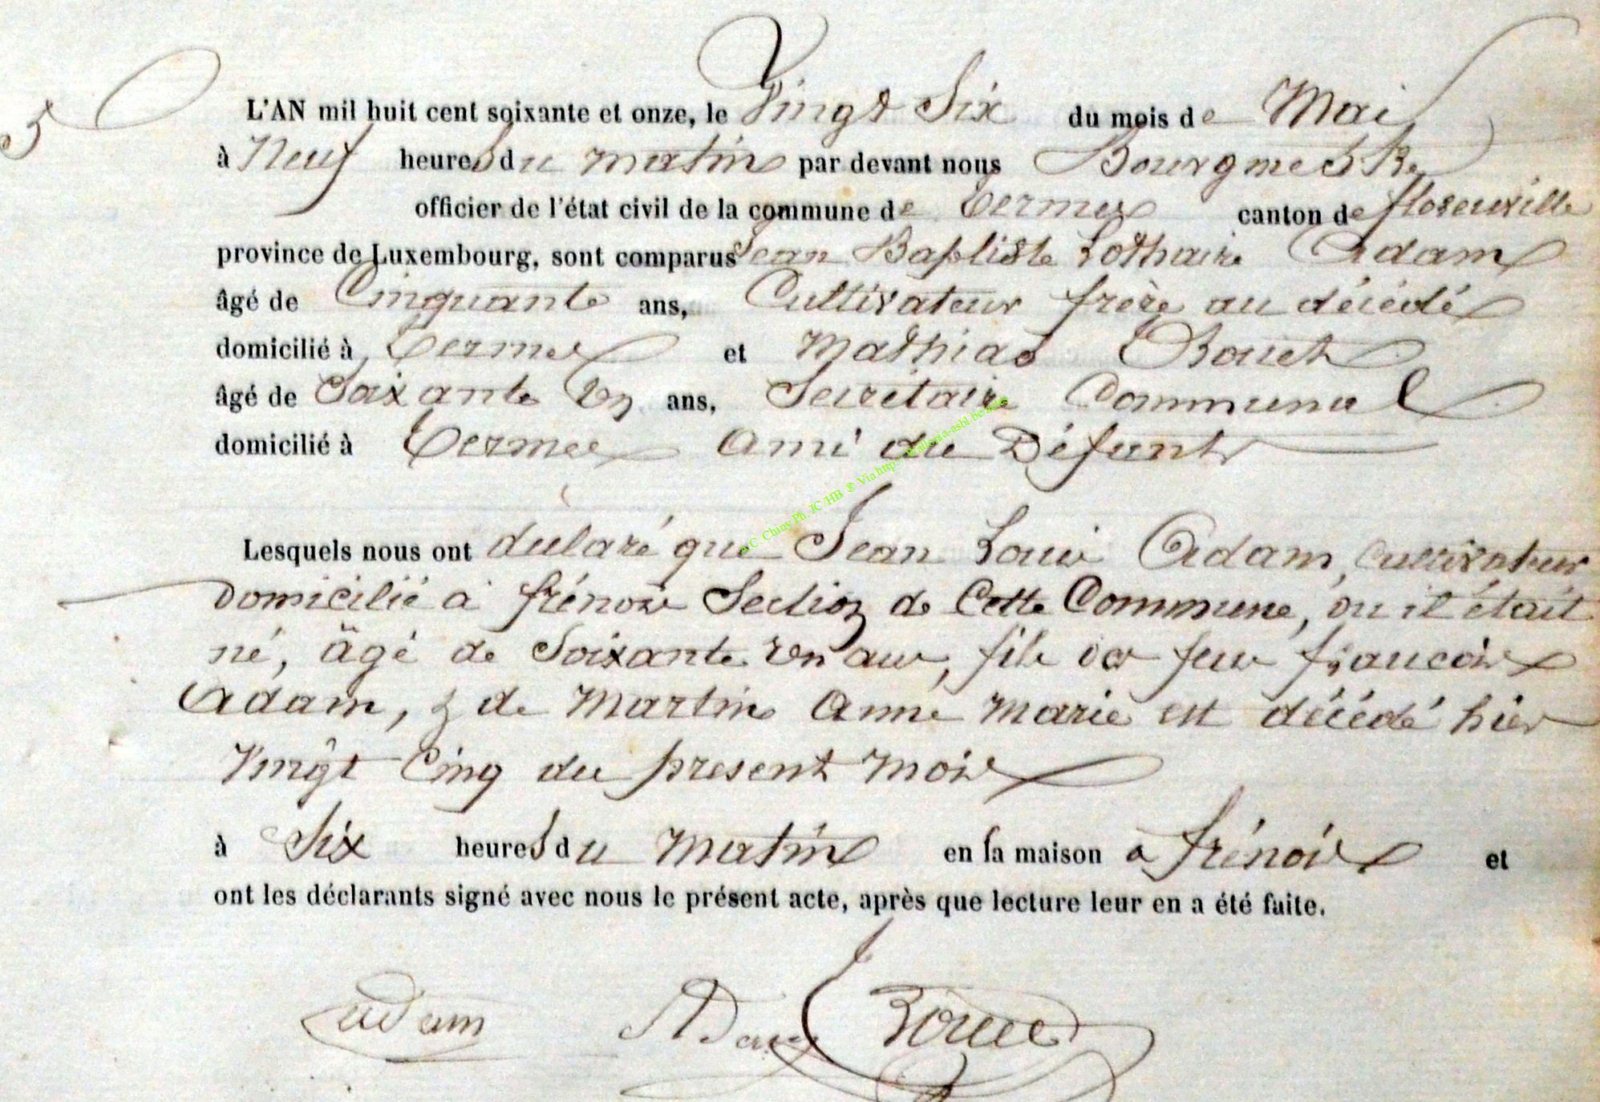 5
L'AN mil huit cent soixante et onze, le Vingt Six du mois de Mai
à Neuf heures du matin par devant nous Bourgmestre
officier de l'état civil de la commune de Termes canton de florenville
province de Luxembourg, sont comparus Jean Baptiste Lothaire Adam
âgé de Cinquante ans, Cultivateur frère au décédé
domicilié à Termes et Mathias Bouet
âgé de Soixante Un ans, Secrétaire Communal
domicilié à Termes Ami du Défunt
Lesquels nous ont déclaré que Jean Louis Adam, Cultivateur
domicilié à frénois Section de Cette Commune, ou il était
né, âgé de Soixante Un ans, fils de feu françois
Adam, & de Martin Anne Marie est décédé hier
Vingt Cinq du present mois
à Six heures du Matin en sa maison a frénois et
ont les déclarants signé avec nous le présent acte, après que lecture leur en a été faite.
adam ADam